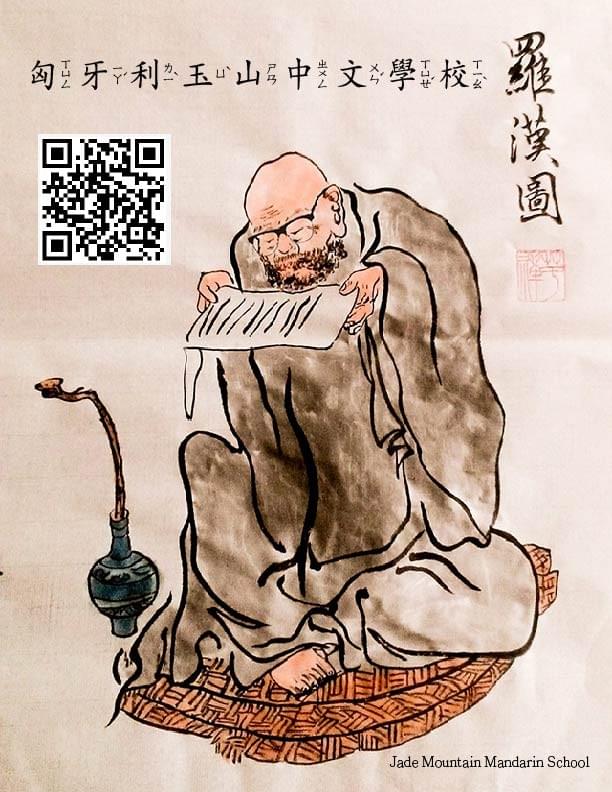 匈ㄒㄩㄥ牙ㄧㄚˊ利ㄌㄧˋ玉ㄩˋ山ㄕㄢ中ㄓㄨㄥ文ㄨㄣˊ學ㄒㄩㄝˊ校ㄒㄧㄠˋ
羅漢圖
Jade Mountain Mandarin School